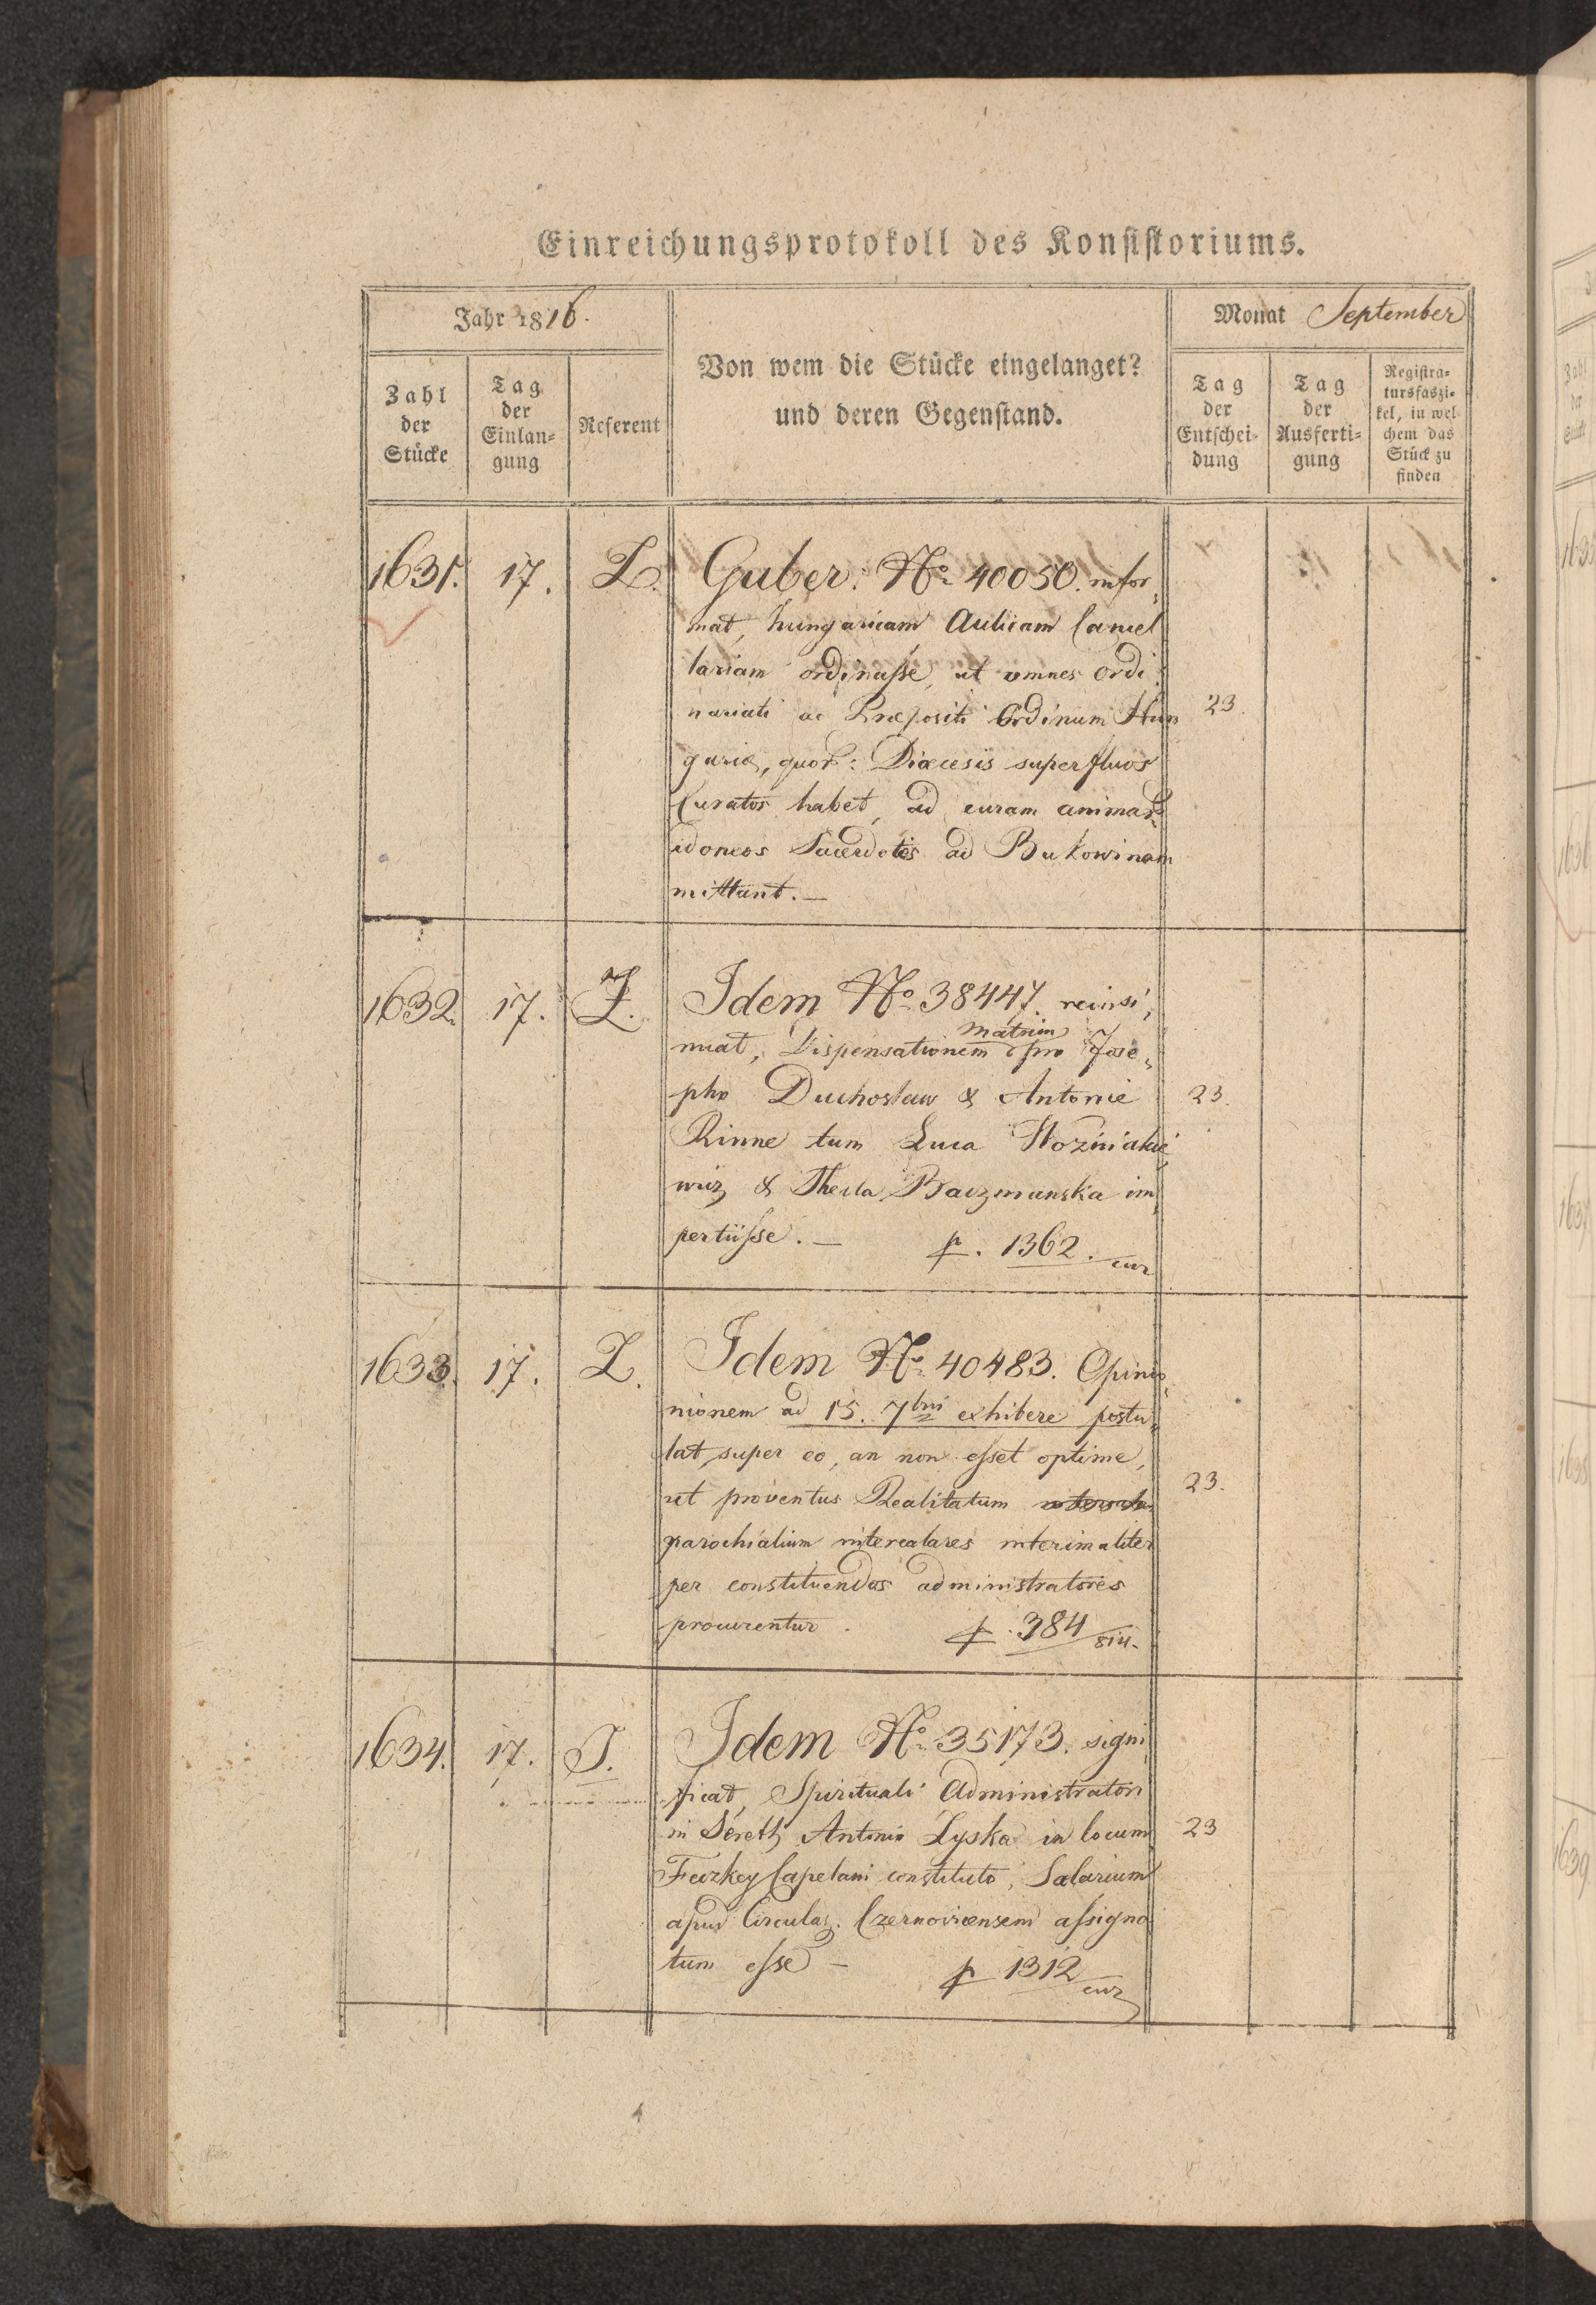 Einreichungsprotokoll des Konsistoriums.
Jahr 1816.
Monat September
Zahl der Stücke
Tag der Einlan-gung
Referent
Von wem die Stücke eingelanget?
und deren Gegenstand.
Tag der Entschei-dung
Tag der Ausferti-gung
Registra-tursfaszi-kel, in wel-chem das Stück zu finden
1631. 17. Z. Guber: No 40050. infor,
mat, hungaricam Aulicam Cancel
lariam ordinasse, ut omnes Ordi
nariati ac Præpositi Ordinum Hun 23.
gariæ, quor: Diœcesis superfluos
Curatos habet, ad curam animar
idoneos Sacerdotes ad Bukowinam
mittant. —
1632. 17. Z. Idem No 38447. reinsi,
nuat, Dispensationem matrim pro Jose,
pho Duchoslaw & Antonie 23.
Rinne tum Luca Wozniakie
wicz & Thecla Baczmanska im
pertiisse. — p. 1362. cur
1633. 17. Z. Idem No 40483. Opinio,
nionem ad 15. 7bri exhibere postu,
lat, super eo, an non esset optime,
ut proventus Realitatum 23.
parochialium intercalares interimaliter
per constituendos administratores
procurentur. p. 384
1634. 17. S. Idem No 35173. signi
ficat, Spirituali Administratori
in Sereth Antonio Lyska in locum 23
Capelani constituto, Salarium
apud Circular. Czernovicensem assigna
tum esse — p 1312 cur